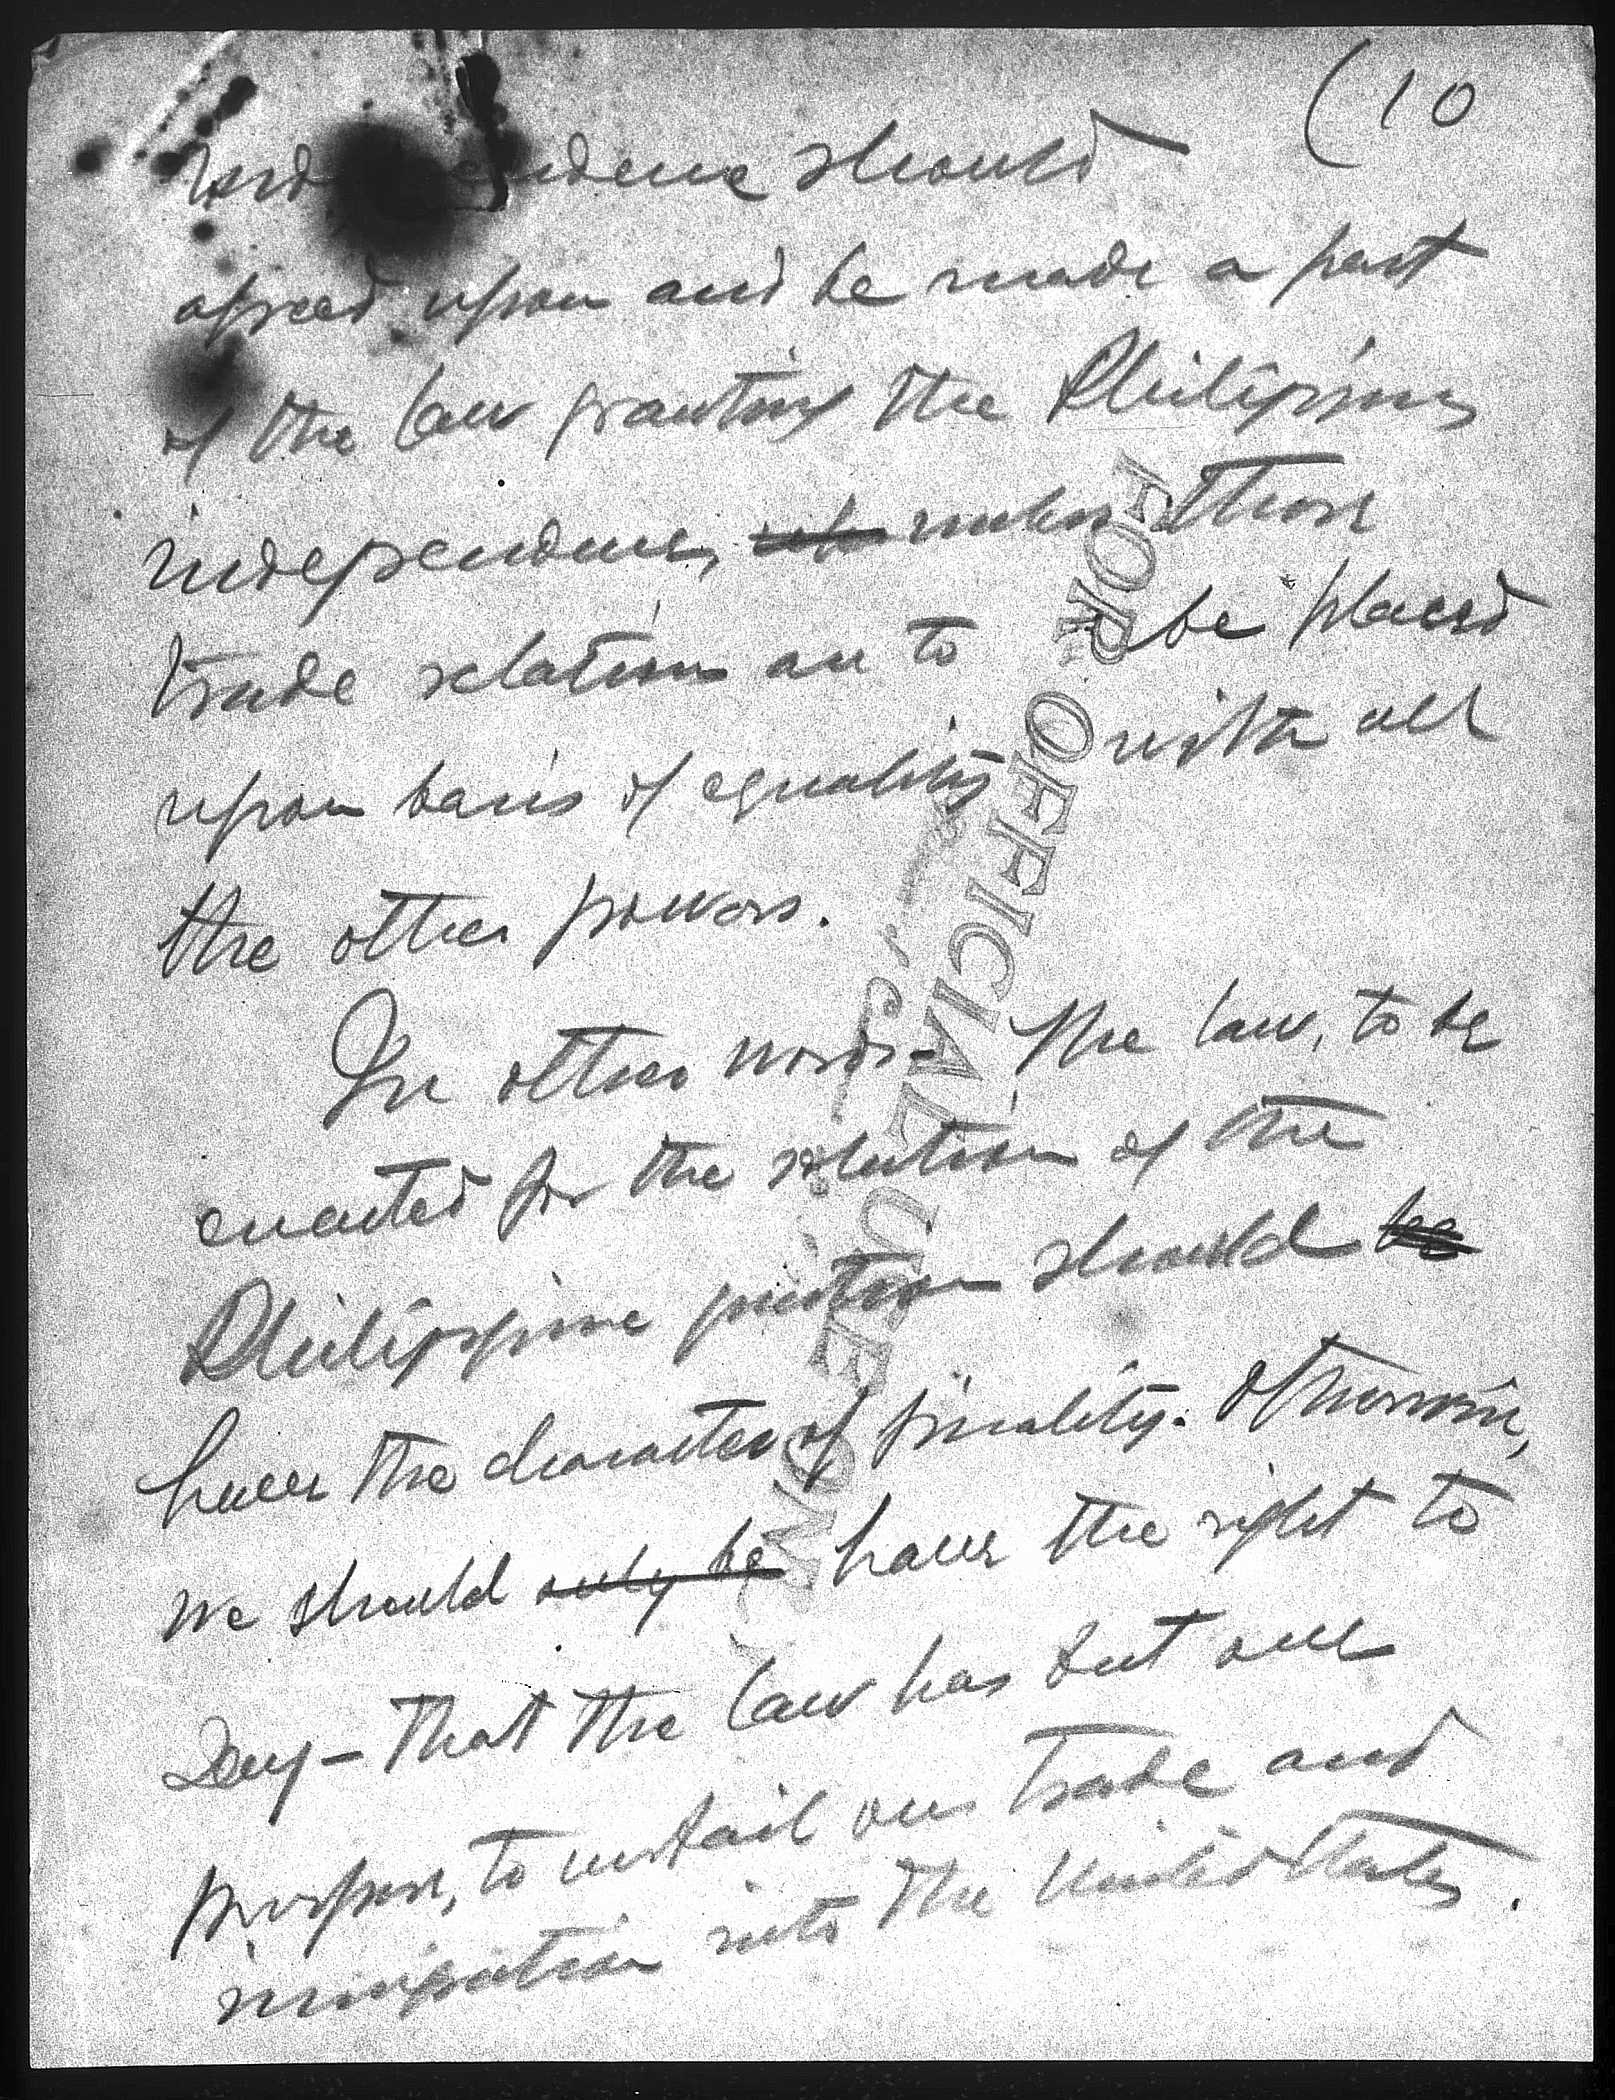 (10
independence should
agreed upon and be made a part
of the law granting the Philippines
independence, unless those
trade relations are to be placed
upon basis of equality with all
the other powers.
In other words – the law, to be
enacted for the solution of the
Philippine question should be
have the character of finality. Otherwise,
we should only be have the right to
say – that the law has but one
purpose, to curtail our trade and
inmigration into the United States.
FOR OFFICIAL USE ONLY